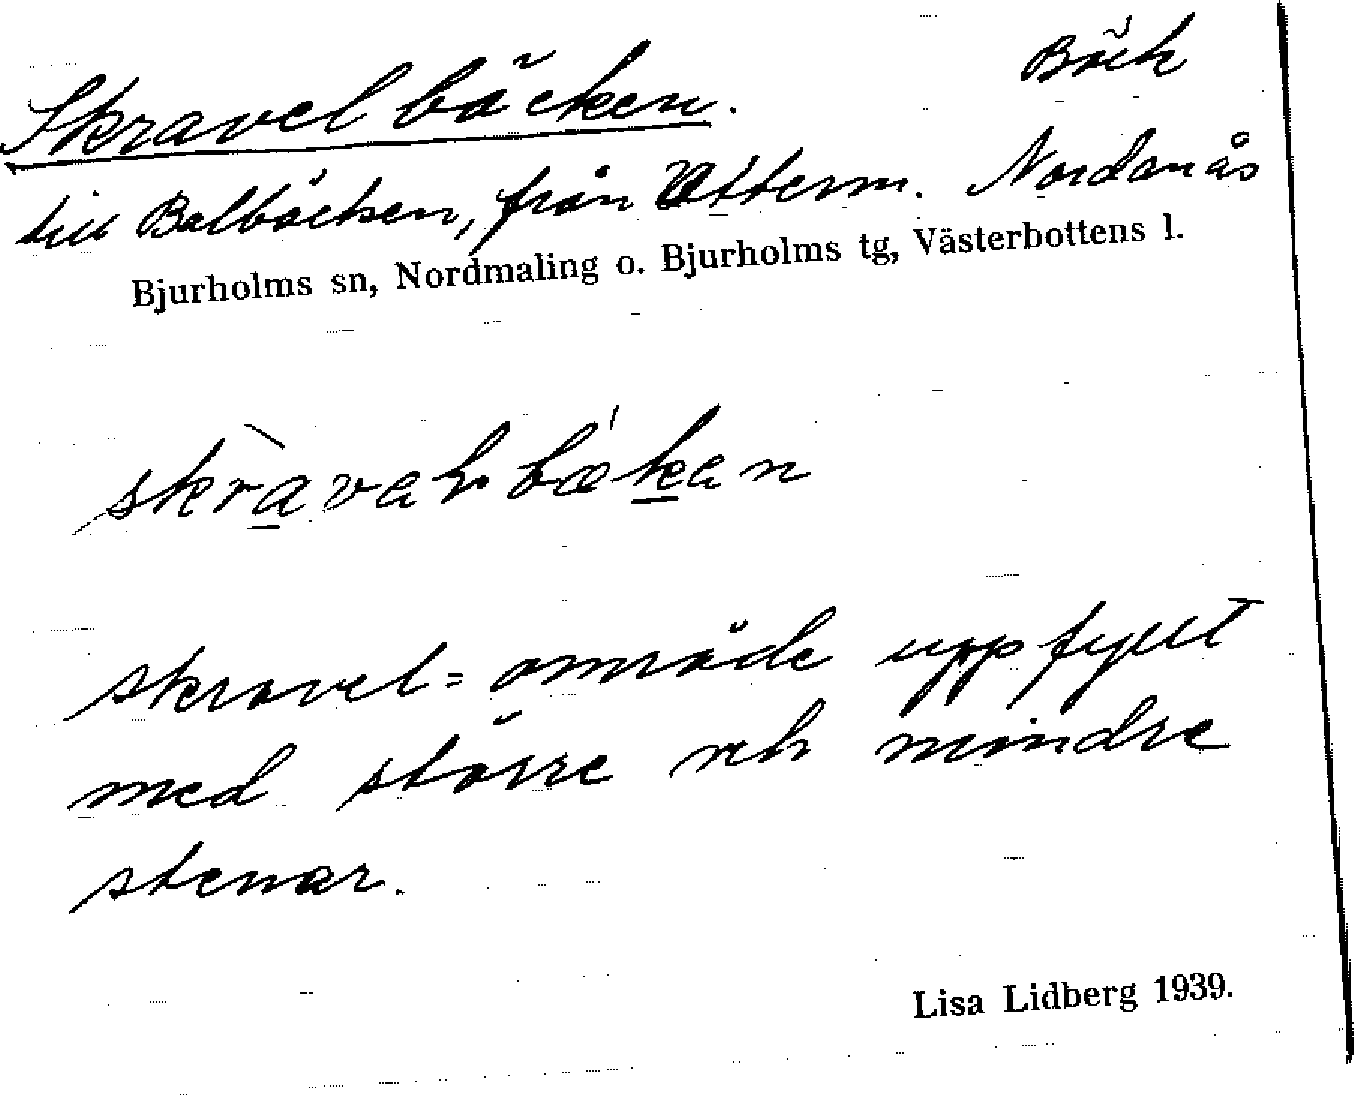 Skravelbäcken. Bäck
till Balbäcken, från Utterm. Nordanås
Bjurholms sn, Nordmaling o. Bjurholms tg, Västerbottens l.
skravel = område uppfyllt
med större och mindre
stenar.
Lisa Lidberg 1939.